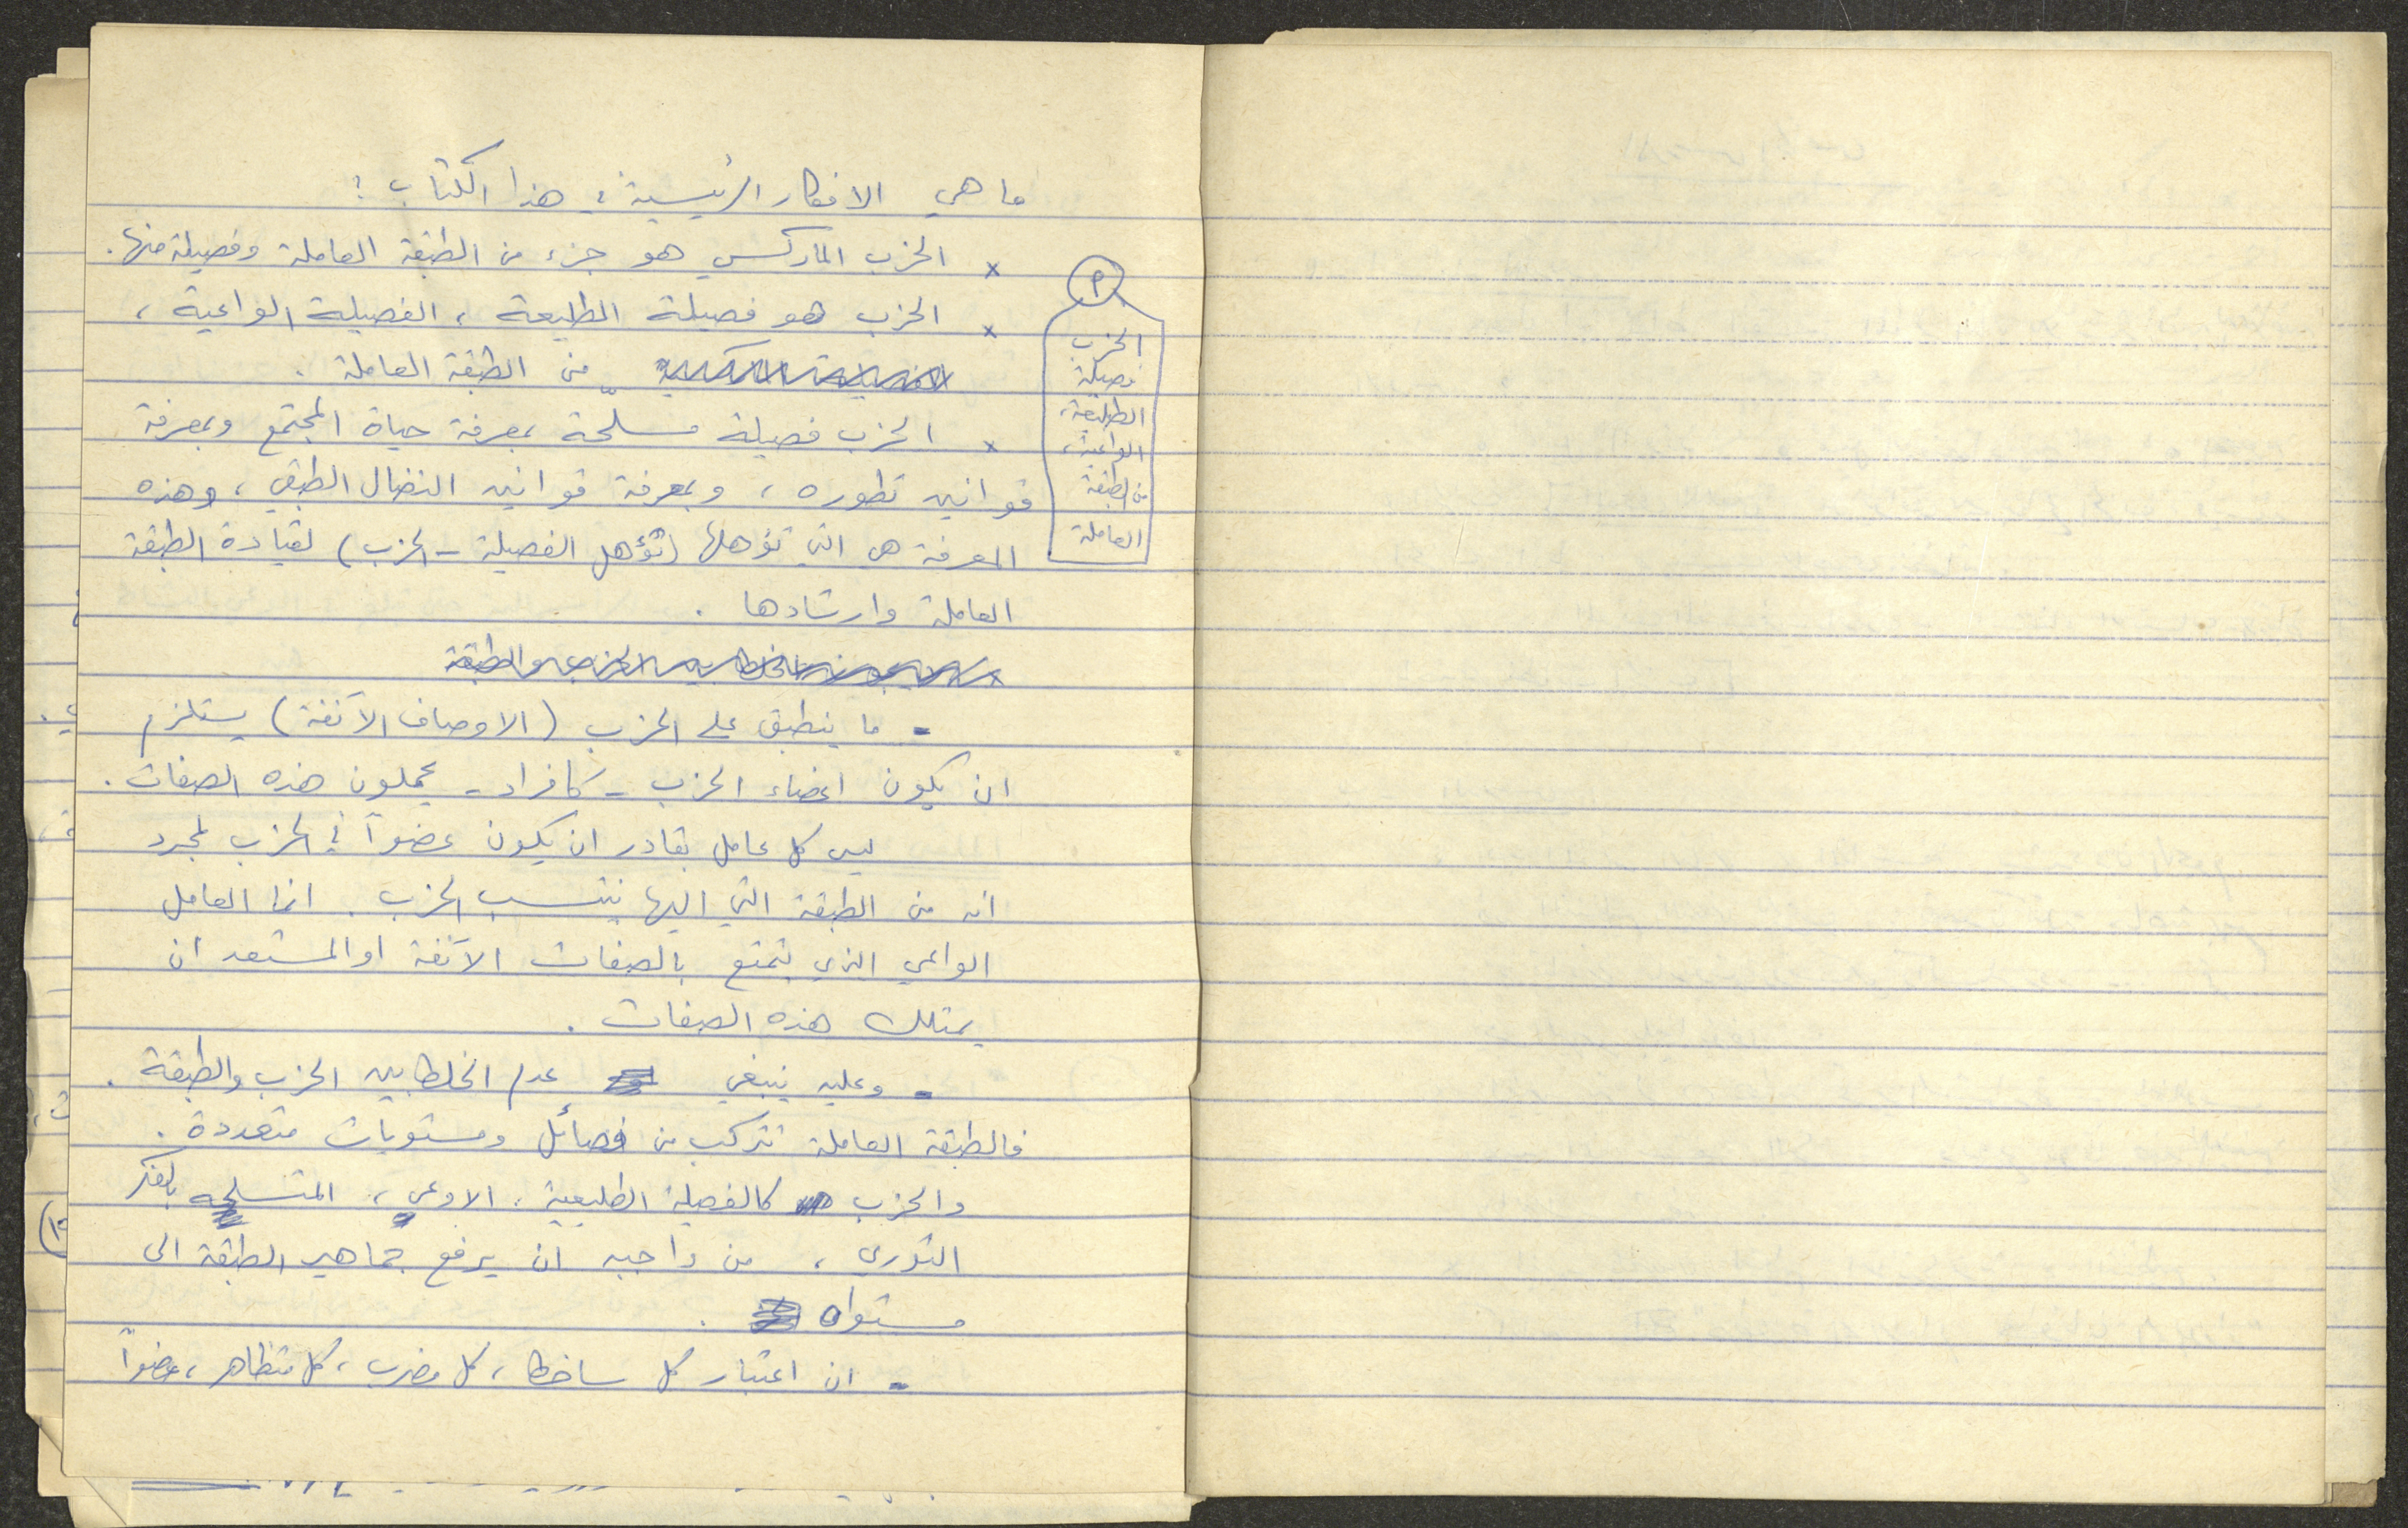 ما هي الافكار الرئيسية في هذا الكتاب ؟
x الحزب الماركسي هو جزء من الطبقة العاملة وفصيلة منها .
x الحزب هو فصيلة الطليعة ، الفصيلة الواعية ،
من الطبقة العاملة .
x الحزب فصيلة مسلّحة بمعرفة حياة المجتمع وبمعرفة
قوانين تطوره ، وبمعرفة قوانين النضال الطبقي ، وهذه
المعرفة هي التي تؤهلها (تؤهل الفصيلة - الحزب) لقيادة الطبقة
العاملة وارشادها .
- ما ينطبق على الحزب (الاوصاف الآنفة) يستلزم
ان يكون اعضاء الحزب - كافراد - يحملون هذه الصفات .
ليس كل عامل بقادر ان يكون عضواً في الحزب لمجرد
انه من الطبقة التي اليها ينتسب الحزب . انما العامل
الواعي الذي يتمتع بالصفات الآنفة او المستعد ان
يمتلك هذه الصفات .
- وعليه ينبغي عدم الخلط بين الحزب والطبقة .
فالطبقة العاملة تتركب من فصائل ومستويات متعددة .
والحزب كالفصيلة الطليعية ، الاوعى ، المتسلحه بالفكر
الثوري ، من واجبه ان يرفع جماهير الطبقة الى
مستواه .
- ان اعتبار كل ساخط ، كل مضرب ، كل متظاهر ، عضواً
أ
الحزب
فصيلة
الطليعة ،
الواعية ،
من الطبقة
العاملة